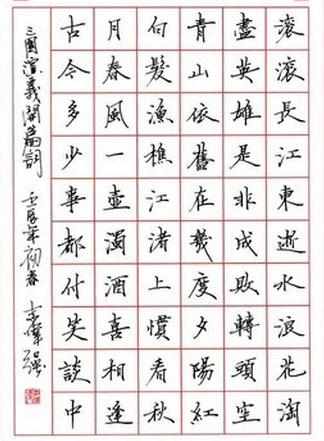 滾滾長江東逝水浪花淘
盡英雄是非成敗轉頭空
青山依舊在幾度夕陽紅
白髮漁樵江渚上慣看秋
月春風一壺濁酒喜相逢
古今多少事都付笑談中
三國演義開篇詞 壬辰年初春 偉强